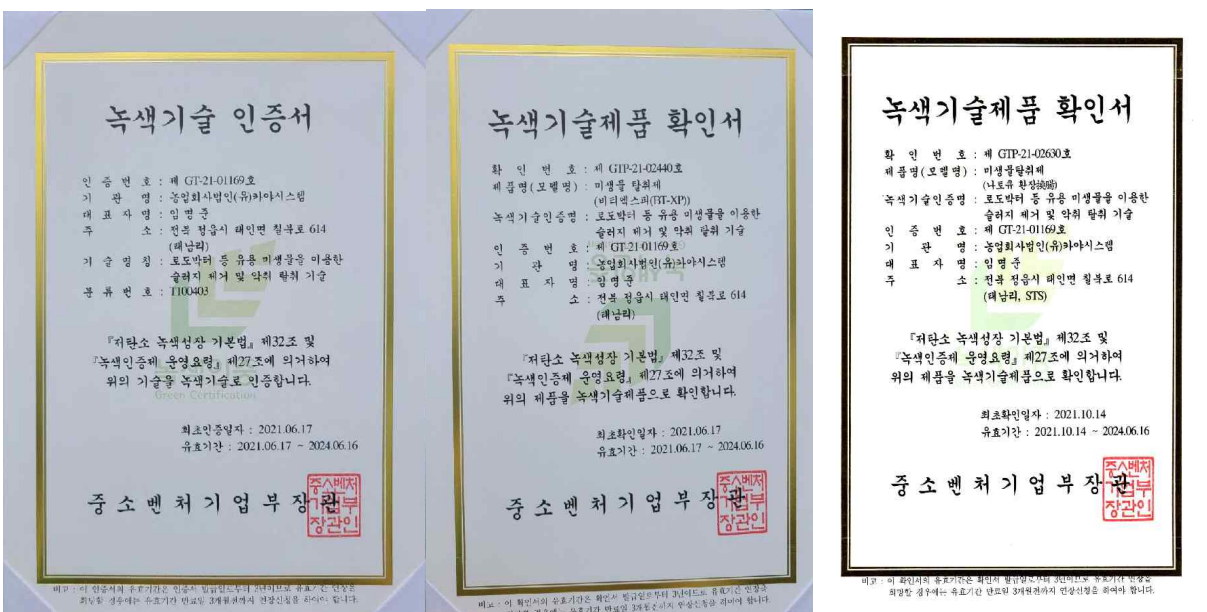 녹색기술 인증서
인 증 번 호 : 제 GT-21-01169호
기 관 명 : 농업회사법인(유)카야시스템
대 표 자 명 : 임명준
주 소 : 전북 정읍시 태인면 칠북로 614
(태남리)
기 술 명 칭 : 로도박터 등 유용 미생물을 이용한
슬러지 제거 및 악취 탈취 기술
분 류 번 호 : T100403
『저탄소 녹색성장 기본법』 제32조 및
『녹색인증제 운영요령』 제27조에 의거하여
위의 기술을 녹색기술로 인증합니다.
Green Certification
최초인증일자 : 2021.06.17
유효기간 : 2021.06.17 ~ 2024.06.16
중소벤처기업부장관
중소벤처
기업부
장관인
비고 : 이 인증서의 유효기간은 인증서 발급일로부터 3년이므로 유효기간 연장을
희망할 경우에는 유효기간 만료일 3개월전까지 연장신청을 하여야 합니다.
녹색기술제품 확인서
확 인 번 호 : 제 GTP-21-02440호
제품명(모델명) : 미생물 탈취제
(비티엑스피(BT-XP))
녹색기술인증명 : 로도박터 등 유용 미생물을 이용한
슬러지 제거 및 악취 탈취 기술
인 증 번 호 : 제 GT-21-01169호
기 관 명 : 농업회사법인(유)카야시스템
대 표 자 명 : 임명준
주 소 : 전북 정읍시 태인면 칠북로 614
(태남리)
『저탄소 녹색성장 기본법』 제32조 및
『녹색인증제 운영요령』 제27조에 의거하여
위의 제품을 녹색기술제품으로 확인합니다.
최초확인일자 : 2021.06.17
유효기간 : 2021.06.17 ~ 2024.06.16
중소벤처기업부장관
중소벤처
기업부
장관인
비고 : 이 확인서의 유효기간은 확인서 발급일로부터 3년이므로 유효기간 연장을
유효기간 만료일 3개월전까지 연장신청을 하여야 합니다.
녹색기술제품 확인서
확 인 번 호 : 제 GTP-21-02630호
제품명(모델명) : 미생물탈취제
(나토유 환장換腸)
녹색기술인증명 : 로도박터 등 유용 미생물을 이용한
슬러지 제거 및 악취 탈취 기술
인 증 번 호 : 제 GT-21-01169호
기 관 명 : 농업회사법인(유)카야시스템
대 표 자 명 : 임명준
주 소 : 전북 정읍시 태인면 칠북로 614
(태남리, STS)
『저탄소 녹색성장 기본법』 제32조 및
『녹색인증제 운영요령』 제27조에 의거하여
위의 제품을 녹색기술제품으로 확인합니다.
최초확인일자 : 2021.10.14
유효기간 : 2021.10.14 ~ 2024.06.16
중소벤처기업부장관
중소벤처
기업부
장관인
비고 : 이 확인서의 유효기간은 확인서 발급일로부터 3년이므로 유효기간 연장을
희망할 경우에는 유효기간 만료일 3개월전까지 연장신청을 하여야 합니다.